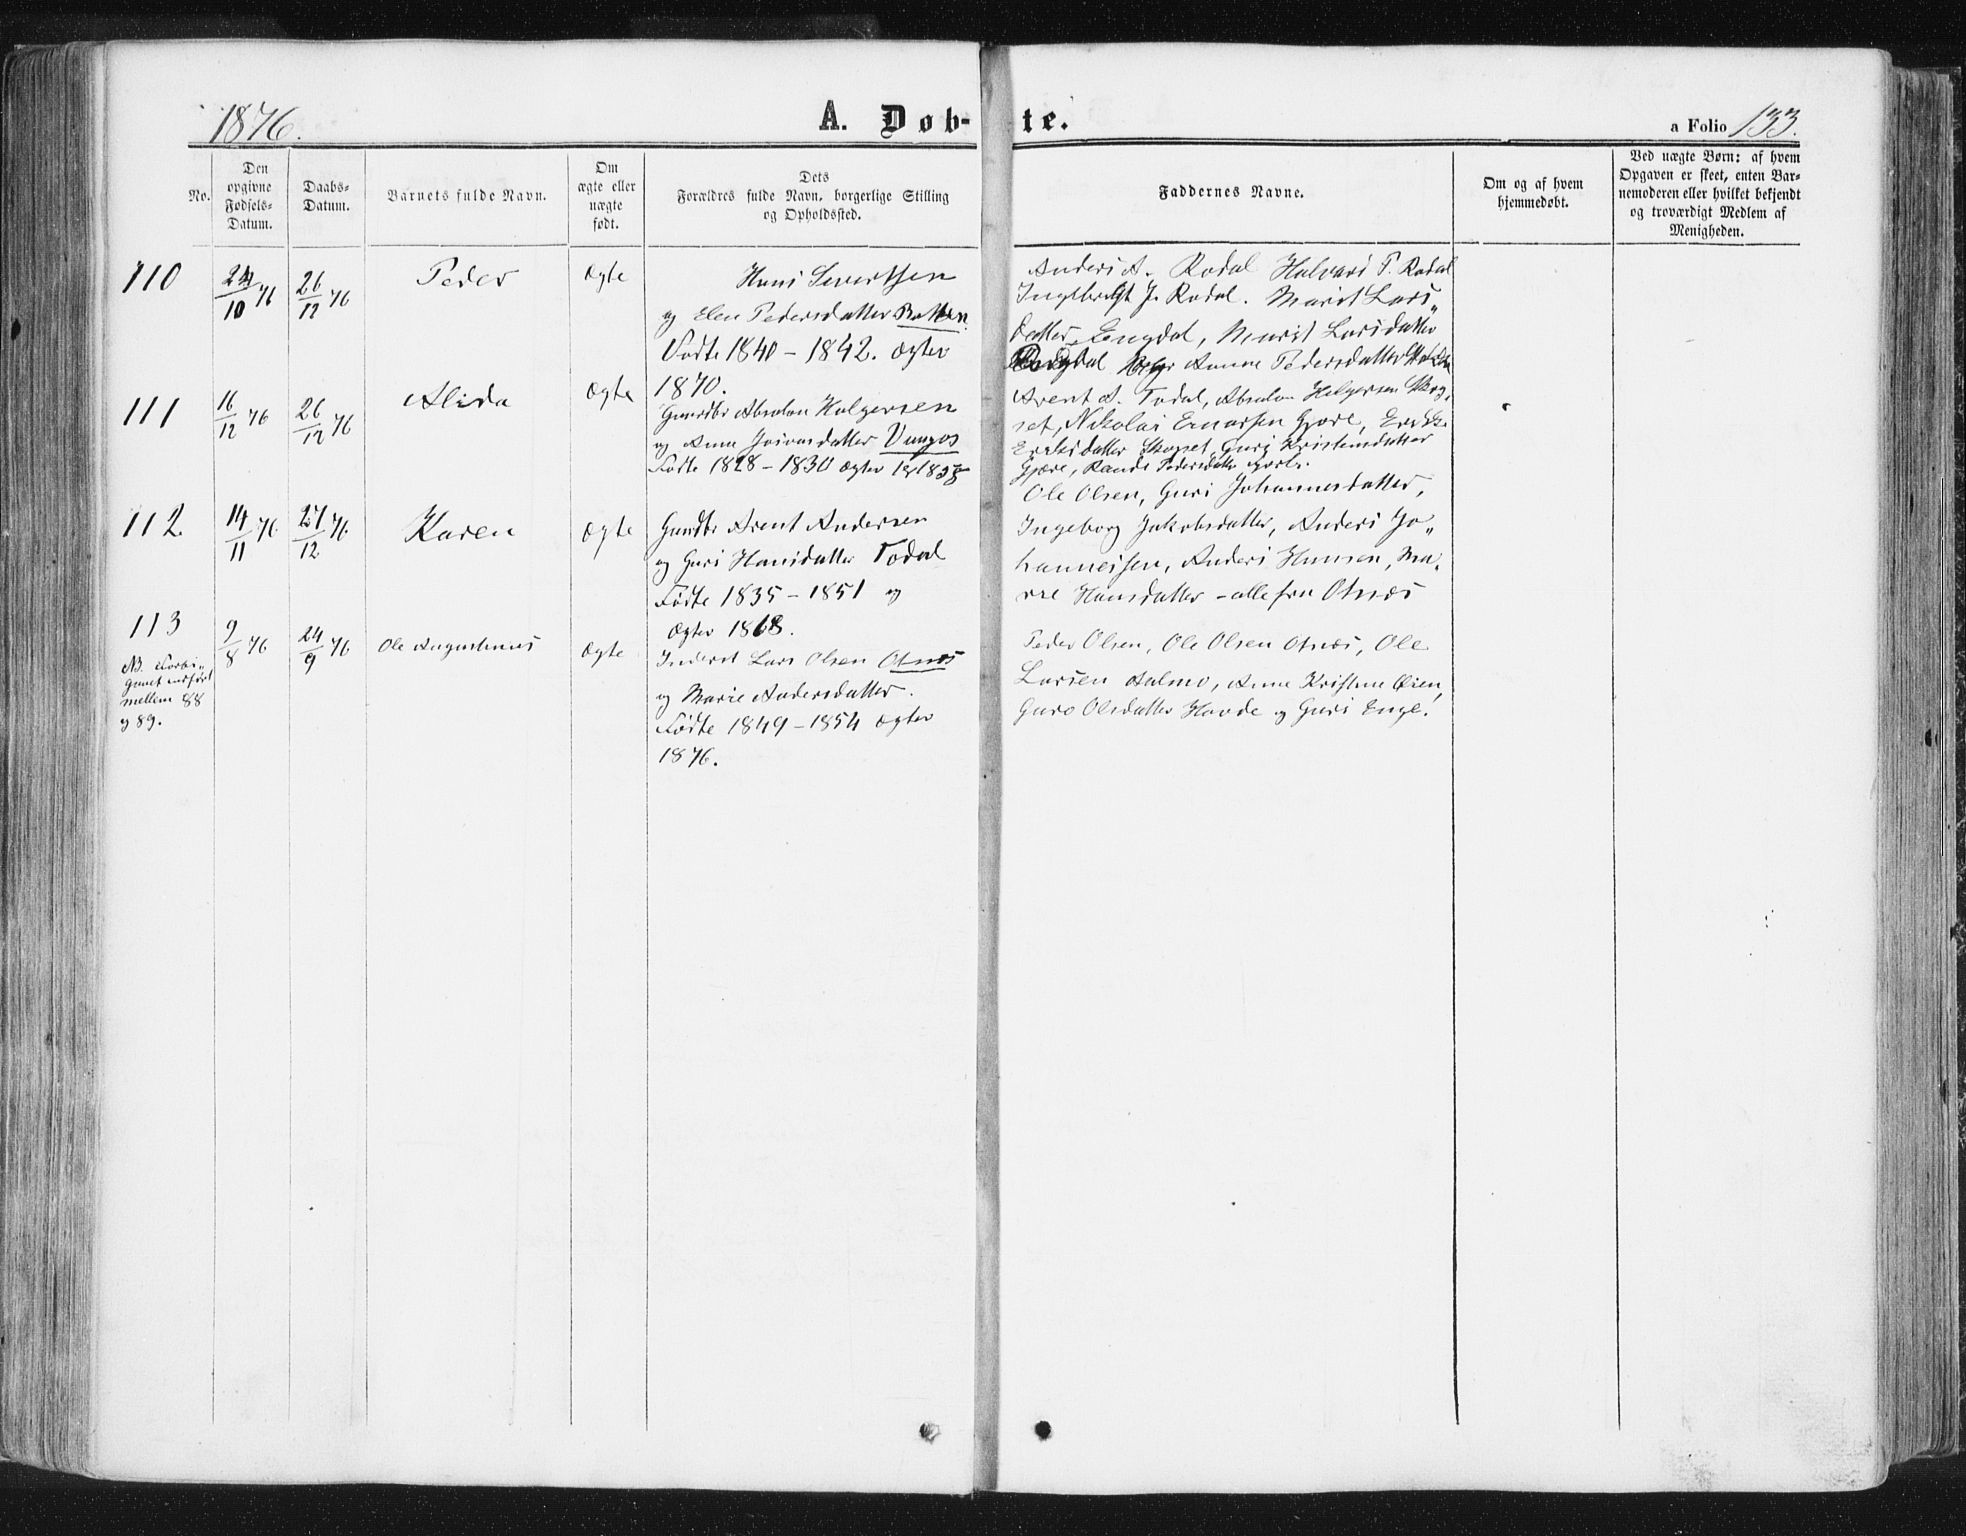 1876.
A. Døb-
te.
a Folio 133.
No.
Den
opgivne
Fødsels-
Datum.
Daabs-
Datum.
Barnets fulde Navn.
Om
ægte eller
uægte
født.
Dets
Forældres fulde Navn, borgerlige Stilling
og Opholdssted.
Faddernes Navne.
Om og af hvem
hjemmedøbt.
Ved uægte Børn: af hvem
Opgaven er skeet, enten Bar-
nemoderen eller hvilket bekjendt
og troværdigt Medlem af
Menigheden.
110
24/10 76
26/12 76
Peder
Ægte
Hans Sivertsen
og Elen Pedersdatter Botten
Fødte 1840 - 1842. Ægtev
1870.
Anders A. Rodal Halvard P. Rodal
Ingebrigt J. Rodal. Marit Lars„
datter Engdal, Marit Larsdatter
Engdal og Anne Pedersdatter
111
16/12 76
26/12 76
Alida
Ægte
Gaardbr Absalon Holgersen
og Anne Joivarsdatter Vaagos
Fødte 1828 - 1830 Ægtev
Arent A. Todal, Absalon Holgersen Skog,
set, Nikolai Einarsen Gjøre,
Eriksdatter Skogset, Guri Kristensdatter
Gjøre, Randi Pedersdatter
112
14/11 76
27/12 76
Karen
Ægte
Gaardbr Arent Andersen
og Guri Hansdatter Todal
Fødte 1835 - 1851 og
Ægtev 1868.
Ole Olsen, Guri Johannesdatter,
Ingeborg Jakobsdatter, Anders Jo„
hannessen, Anders Hansen, Ma-
rie Hansdatter - alle fra Otnæs
113
NB Forbi„
gaaet indført
mellem 88
og 89.
9/8 76
24/9 76
Ole Augustinus
Ægte
Inderst Lars Olsen Otnæs
og Marie Andersdatter.
Fødte 1849 - 1854 Ægtev
1876.
Peder Olsen, Ole Olsen Otnæs, Ole
Larsen Aalmo, Anne Kristine Øien,
Guro Olsdatter Hovde og Guri Enge.